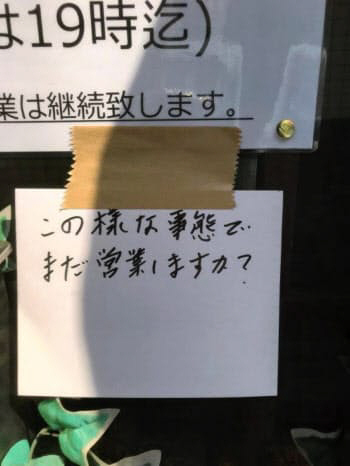 は19時迄)
業は継続致します。
この様な事態で
まだ営業しますか?